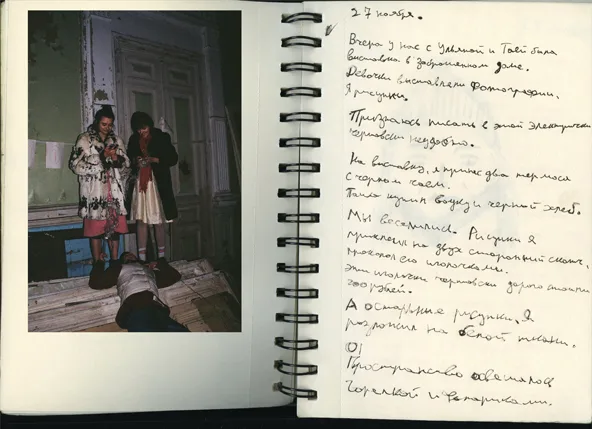 27 ноября.
Вчера у нас с Ульяной и Таей была
выставка в заброшенном доме.
Девочки выставляли фотографии,
Я рисунки.
Признаюсь писать в этой электричке
чертовски неудобно.
На выставку, я принес два термоса
с черным чаем.
Паша купил водку и черный хлеб.
Мы веселились. Рисунки я
приклеил на двух сторонний скотч,
проколол его иголочками.
Эти иголочки чертовски дорого стоили
рублей.
А остальные рисунки, Я
разложил на белой ткани.
Пространство освещалось
Горелкой и фонариками.